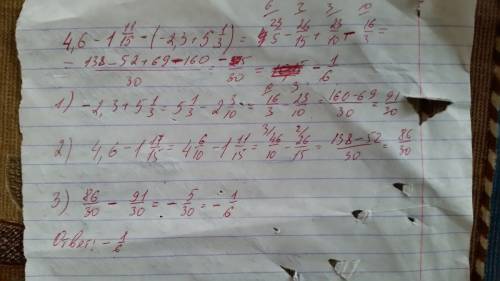 4,6 - 1 11/15 - (-2,3 + 5 1/3) = 23/5 - 26/15 + 23/10 - 16/3 =
= (138 - 52 + 69 - 160)/30 = -5/30 = - 1/6
1) -2,3 + 5 1/3 = 5 1/3 - 2 3/10 = 16/3 - 23/10 = (160 - 69)/30 = 91/30
2) 4,6 - 1 11/15 = 4 6/10 - 1 11/15 = 46/10 - 26/15 = (138 - 52)/30 = 86/30
3) 86/30 - 91/30 = - 5/30 = - 1/6
Ответ: - 1/6